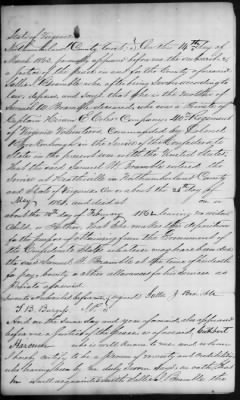 State of Virginia
Northumberland County Court, On the 14th day of
March 1863 personally appeared before me the
a justice of the peace in and for the County aforesaid
Sallie J. Bramble who after being sworn according to
law, deposes and says that she is the mother of
Samuel W. Bramble deceased, who was a Private of
Captain Hiram C. Company 40th Regiment
of Virginia Volunteers Commanded by Colonel
Brockenbrough in the Service of the Confederate
States in the present war with the United States
that the said Samuel W. Bramble entered the
Service at Heathsville in Northumberland County
and State of Virginia on or about the 26th day of
May 1861, and died at on or
about the day of February 1862 leaving no widow
Child, or Father that she makes this deposition
for the purpose of from the Government of
the Confederate States
the said Samuel W. Bramble at the time of his death
for pay, bounty or other allowances for his services as
private aforesaid
Sworn to & subscribed before me (signed) Sallie J Bramble
And on the same day and year aforesaid, also appeared
before me a justice of the peace as aforesaid, Cuthbert
who is well known to me and whom
I hereby certify to be a person of veracity and credibility
who having been by me duly sworn says on oath, that
he is well acquainted with Sallie J. Bramble the